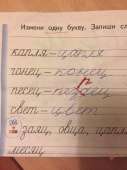 Измени одну букву. Запиши сл
капля – цапля
гонец – конец
песец – певец
свет – цвет
заяц, овца, цапля
месяц